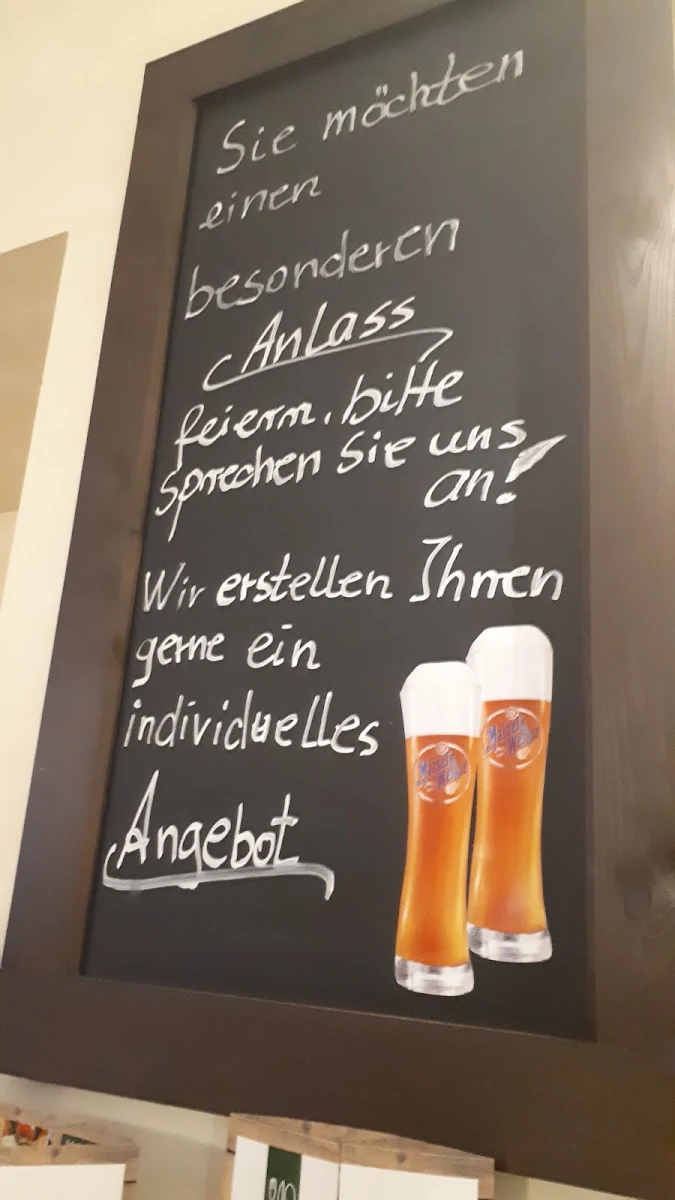 Sie möchten
einen
besonderen
Anlass
feiern, bitte
sprechen Sie uns
an!
Wir erstellen Ihnen
gerne ein
individuelles
Angebot
Maisel's
Weisse
Maisel's
Weisse